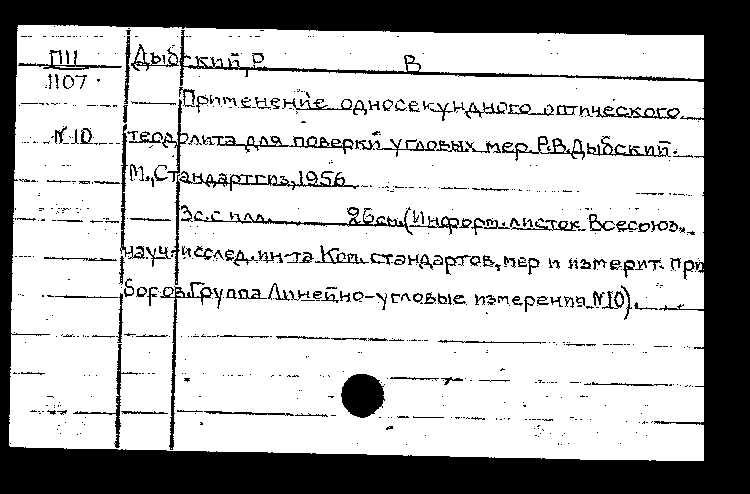 П11 Дыбский, Р В
1107.
Применение односекундного оптического
№10 теодолита для поверки угловых мер. Р.В.Дыбский.
М., Стандартгиз, 1956
3с.с илл. 26см. (Информ. листок Всесоюз.
науч-исслед. ин-та Ком. стандартов, мер и измерит. при
боров. Группа Линейно-угловые измерения №10).